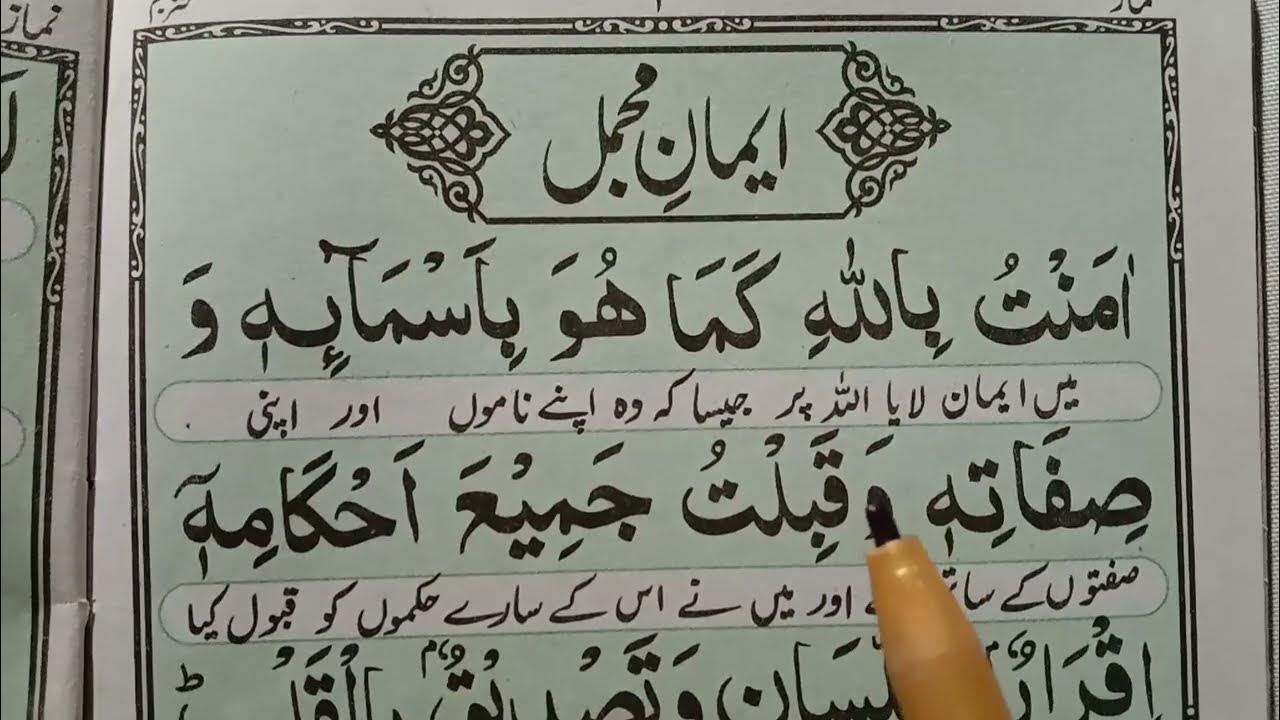 نماز
ایمانِ مجمل
اٰمَنْتُ بِاللّٰهِ كَمَا هُوَ بِاَسْمَآئِهٖ وَ
میں ایمان لایا اللہ پر جیسا کہ وہ اپنے ناموں اور اپنی
صِفَاتِهٖ وَقَبِلْتُ جَمِيْعَ اَحْكَامِهٖٓ
صفتوں کے اور میں نے اس کے سارے حکموں کو قبول کیا
اِقْرَارٌۢ وَتَصْدِيْقٌۢ بِالْقَلْبِ ط